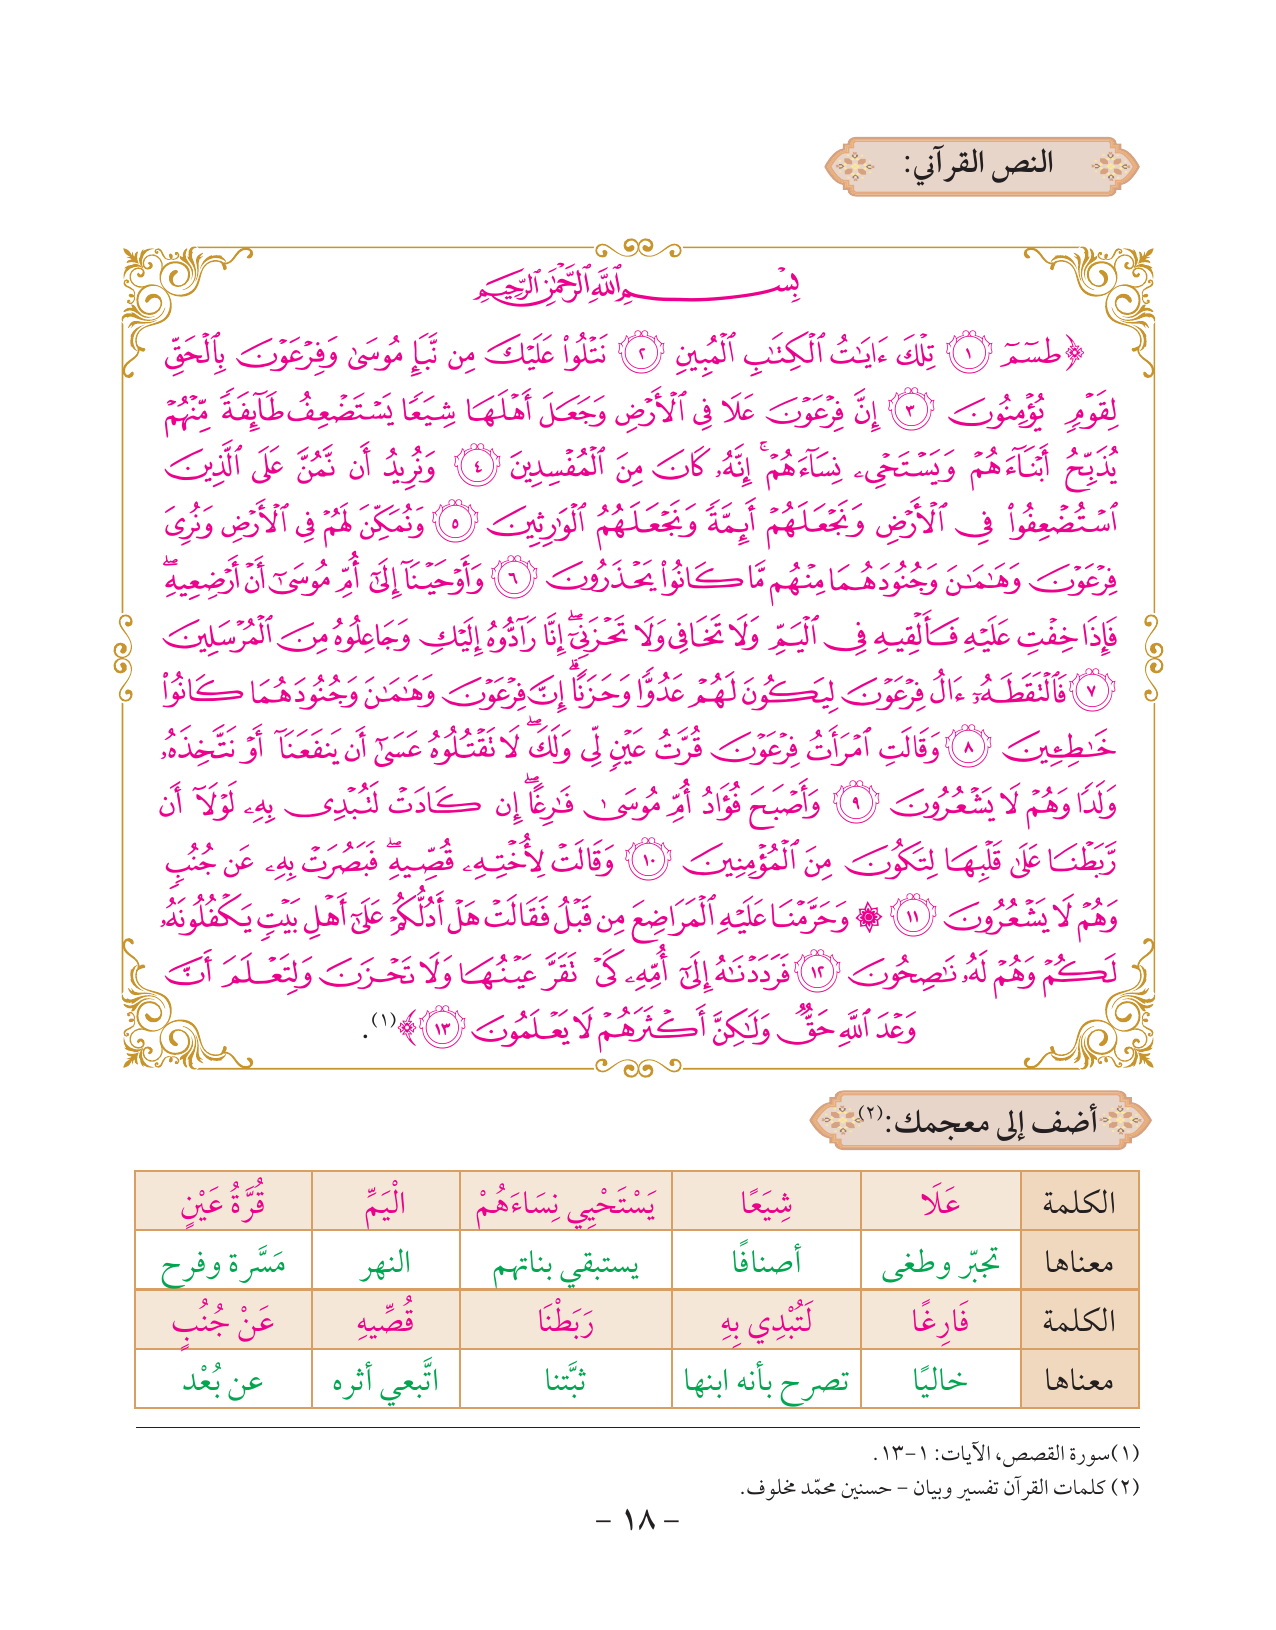 النص القرآني:
بِسْمِ ٱللَّهِ ٱلرَّحْمَٰنِ ٱلرَّحِيمِ
﴿طسٓمٓ ١ تِلْكَ ءَايَٰتُ ٱلْكِتَٰبِ ٱلْمُبِينِ ٢ نَتْلُوا۟ عَلَيْكَ مِن نَّبَإِ مُوسَىٰ وَفِرْعَوْنَ بِٱلْحَقِّ
لِقَوْمٍ يُؤْمِنُونَ ٣ إِنَّ فِرْعَوْنَ عَلَا فِى ٱلْأَرْضِ وَجَعَلَ أَهْلَهَا شِيَعًا يَسْتَضْعِفُ طَآئِفَةً مِّنْهُمْ
يُذَبِّحُ أَبْنَآءَهُمْ وَيَسْتَحْىِۦ نِسَآءَهُمْ ۚ إِنَّهُۥ كَانَ مِنَ ٱلْمُفْسِدِينَ ٤ وَنُرِيدُ أَن نَّمُنَّ عَلَى ٱلَّذِينَ
ٱسْتُضْعِفُوا۟ فِى ٱلْأَرْضِ وَنَجْعَلَهُمْ أَئِمَّةً وَنَجْعَلَهُمُ ٱلْوَٰرِثِينَ ٥ وَنُمَكِّنَ لَهُمْ فِى ٱلْأَرْضِ وَنُرِىَ
فِرْعَوْنَ وَهَٰمَٰنَ وَجُنُودَهُمَا مِنْهُم مَّا كَانُوا۟ يَحْذَرُونَ ٦ وَأَوْحَيْنَآ إِلَىٰٓ أُمِّ مُوسَىٰٓ أَنْ أَرْضِعِيهِ ۖ
فَإِذَا خِفْتِ عَلَيْهِ فَأَلْقِيهِ فِى ٱلْيَمِّ وَلَا تَخَافِى وَلَا تَحْزَنِىٓ ۖ إِنَّا رَآدُّوهُ إِلَيْكِ وَجَاعِلُوهُ مِنَ ٱلْمُرْسَلِينَ
٧ فَٱلْتَقَطَهُۥٓ ءَالُ فِرْعَوْنَ لِيَكُونَ لَهُمْ عَدُوًّا وَحَزَنًا ۗ إِنَّ فِرْعَوْنَ وَهَٰمَٰنَ وَجُنُودَهُمَا كَانُوا۟
خَٰطِـِٔينَ ٨ وَقَالَتِ ٱمْرَأَتُ فِرْعَوْنَ قُرَّتُ عَيْنٍ لِّى وَلَكَ ۖ لَا تَقْتُلُوهُ عَسَىٰٓ أَن يَنفَعَنَآ أَوْ نَتَّخِذَهُۥ
وَلَدًا وَهُمْ لَا يَشْعُرُونَ ٩ وَأَصْبَحَ فُؤَادُ أُمِّ مُوسَىٰ فَٰرِغًا ۖ إِن كَادَتْ لَتُبْدِى بِهِۦ لَوْلَآ أَن
رَّبَطْنَا عَلَىٰ قَلْبِهَا لِتَكُونَ مِنَ ٱلْمُؤْمِنِينَ ١٠ وَقَالَتْ لِأُخْتِهِۦ قُصِّيهِ ۖ فَبَصُرَتْ بِهِۦ عَن جُنُبٍ
وَهُمْ لَا يَشْعُرُونَ ١١ ۞ وَحَرَّمْنَا عَلَيْهِ ٱلْمَرَاضِعَ مِن قَبْلُ فَقَالَتْ هَلْ أَدُلُّكُمْ عَلَىٰٓ أَهْلِ بَيْتٍ يَكْفُلُونَهُۥ
لَكُمْ وَهُمْ لَهُۥ نَٰصِحُونَ ١٢ فَرَدَدْنَٰهُ إِلَىٰٓ أُمِّهِۦ كَىْ تَقَرَّ عَيْنُهَا وَلَا تَحْزَنَ وَلِتَعْلَمَ أَنَّ
وَعْدَ ٱللَّهِ حَقٌّ وَلَٰكِنَّ أَكْثَرَهُمْ لَا يَعْلَمُونَ ١٣﴾(١).
أضف إلى معجمك:(٢)
الكلمة عَلَا شِيَعًا يَسْتَحْيِي نِسَاءَهُمْ الْيَمِّ قُرَّةُ عَيْنٍ
معناها تجبّر وطغى أصنافًا يستبقي بناتهم النهر مَسَّرة وفرح
الكلمة فَارِغًا لَتُبْدِي بِهِ رَبَطْنَا قُصِّيهِ عَنْ جُنُبٍ
معناها خاليًا تصرح بأنه ابنها ثبَّتنا اتَّبعي أثره عن بُعْد
(١)سورة القصص، الآيات: ١-١٣.
(٢) كلمات القرآن تفسير وبيان - حسنين محمّد مخلوف.
- ١٨ -